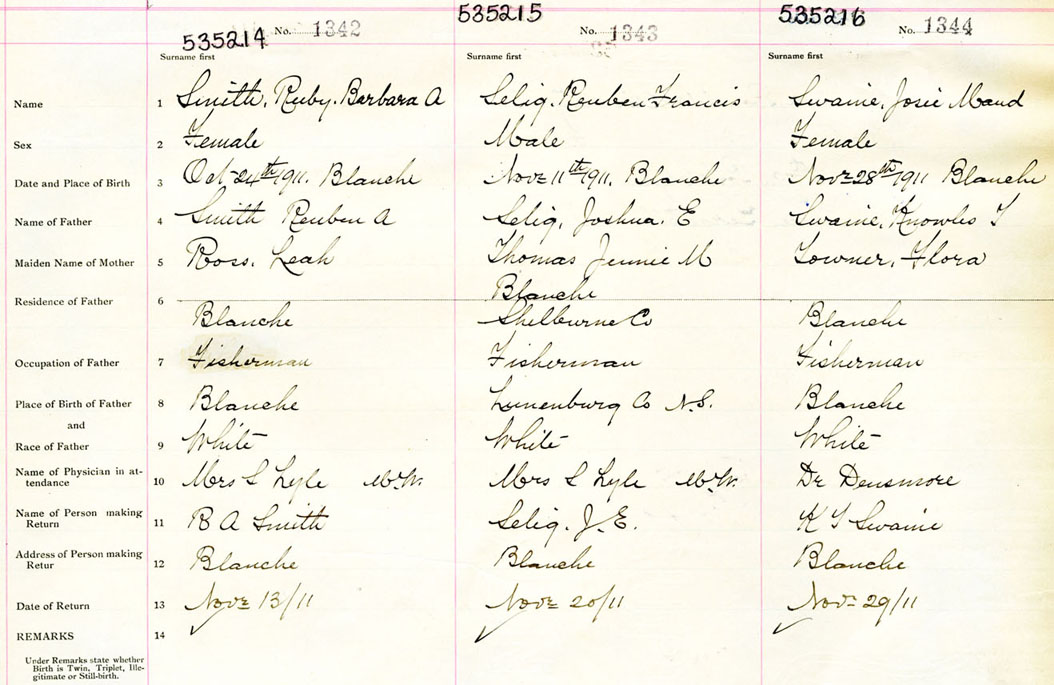 535214 No. 1342 535215 No. 1343 535216 No. 1344
Surname first Surname first Surname first
Name 1 Smith, Ruby. Barbara A Selig. Reuben Francis Swaine, Josie Maud
Sex 2 Female Male Female
Date and Place of Birth 3 Oct 24th 1911. Blanche Nov 11th 1911. Blanche Nov 28th 1911 Blanche
Name of Father 4 Smith Reuben A Selig, Joshua. E Swaine, Knowles T
Maiden Name of Mother 5 Ross. Leah Thomas Jennie M Towner, Flora
Blanche
Residence of Father 6 Blanche Shelburne Co Blanche
Occupation of Father 7 Fisherman Fisherman Fisherman
Place of Birth of Father 8 Blanche Lunenburg Co N.S. Blanche
and
Race of Father 9 White White White
Name of Physician in at-
tendance 10 Mrs S Lyle M.W. Mrs S Lyle M.W. Dr Densmore
Name of Person making
Return 11 R A Smith Selig. J. E. K T Swaine
Address of Person making
Retur 12 Blanche Blanche Blanche
Date of Return 13 Nov 13/11 Nov 20/11 Nov 29/11
REMARKS 14
Under Remarks state whether
Birth is Twin, Triplet, Ille-
gitimate or Still-birth.